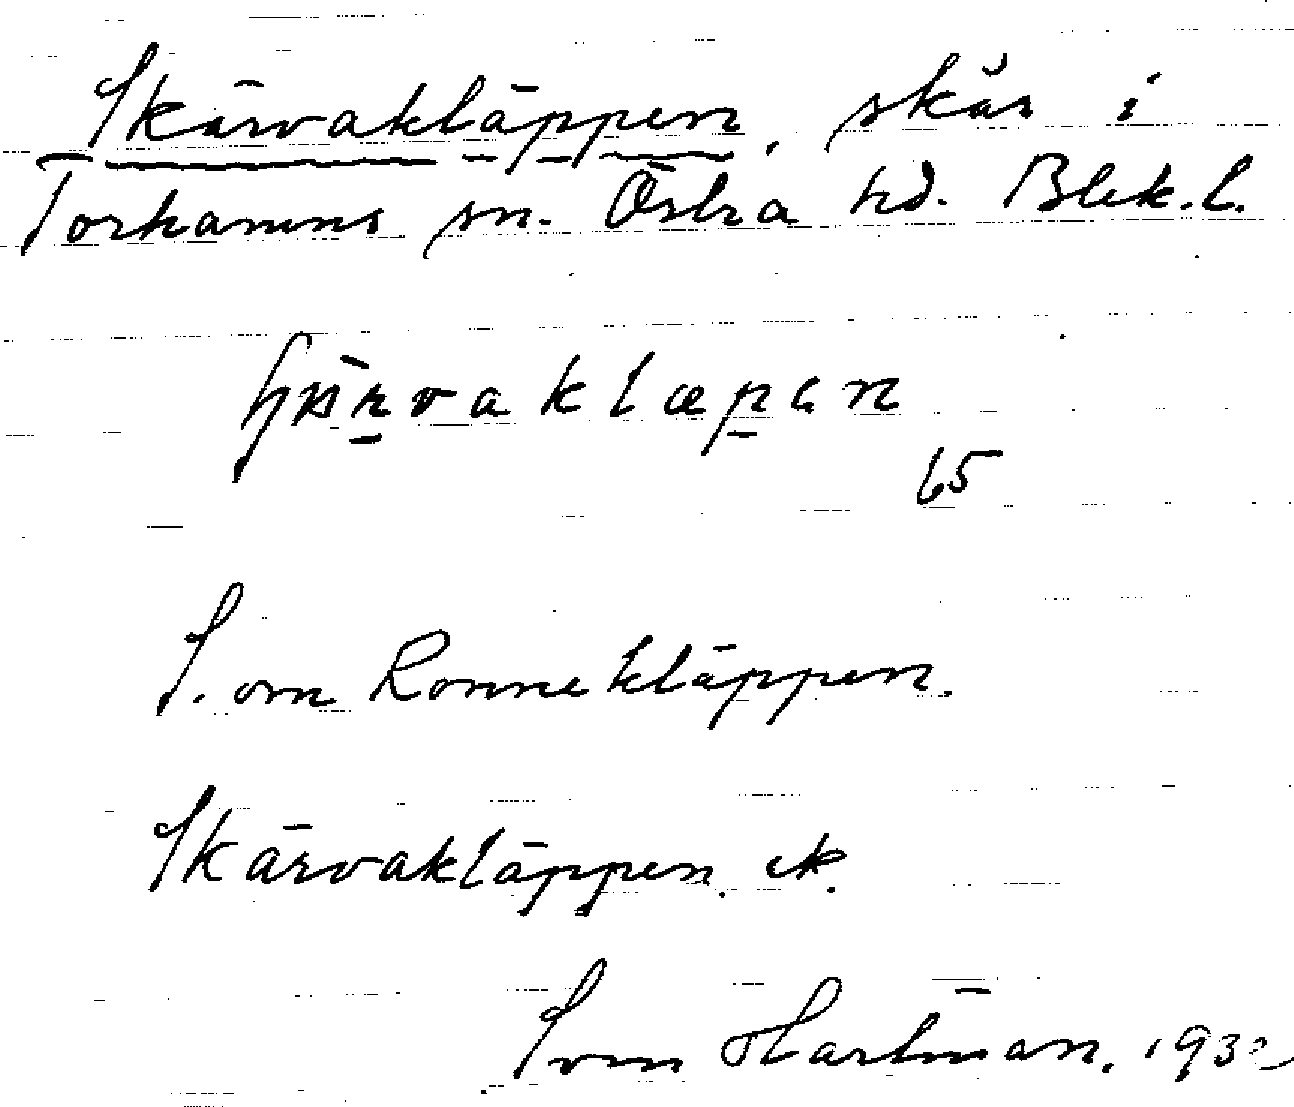 Skärvakläppen, skär i
Torhamns sn. Östra hd. Blek.l.
65
S. om Ronnekläppen.
Skärvakläppen. ek.
Sven Hartman. 1932